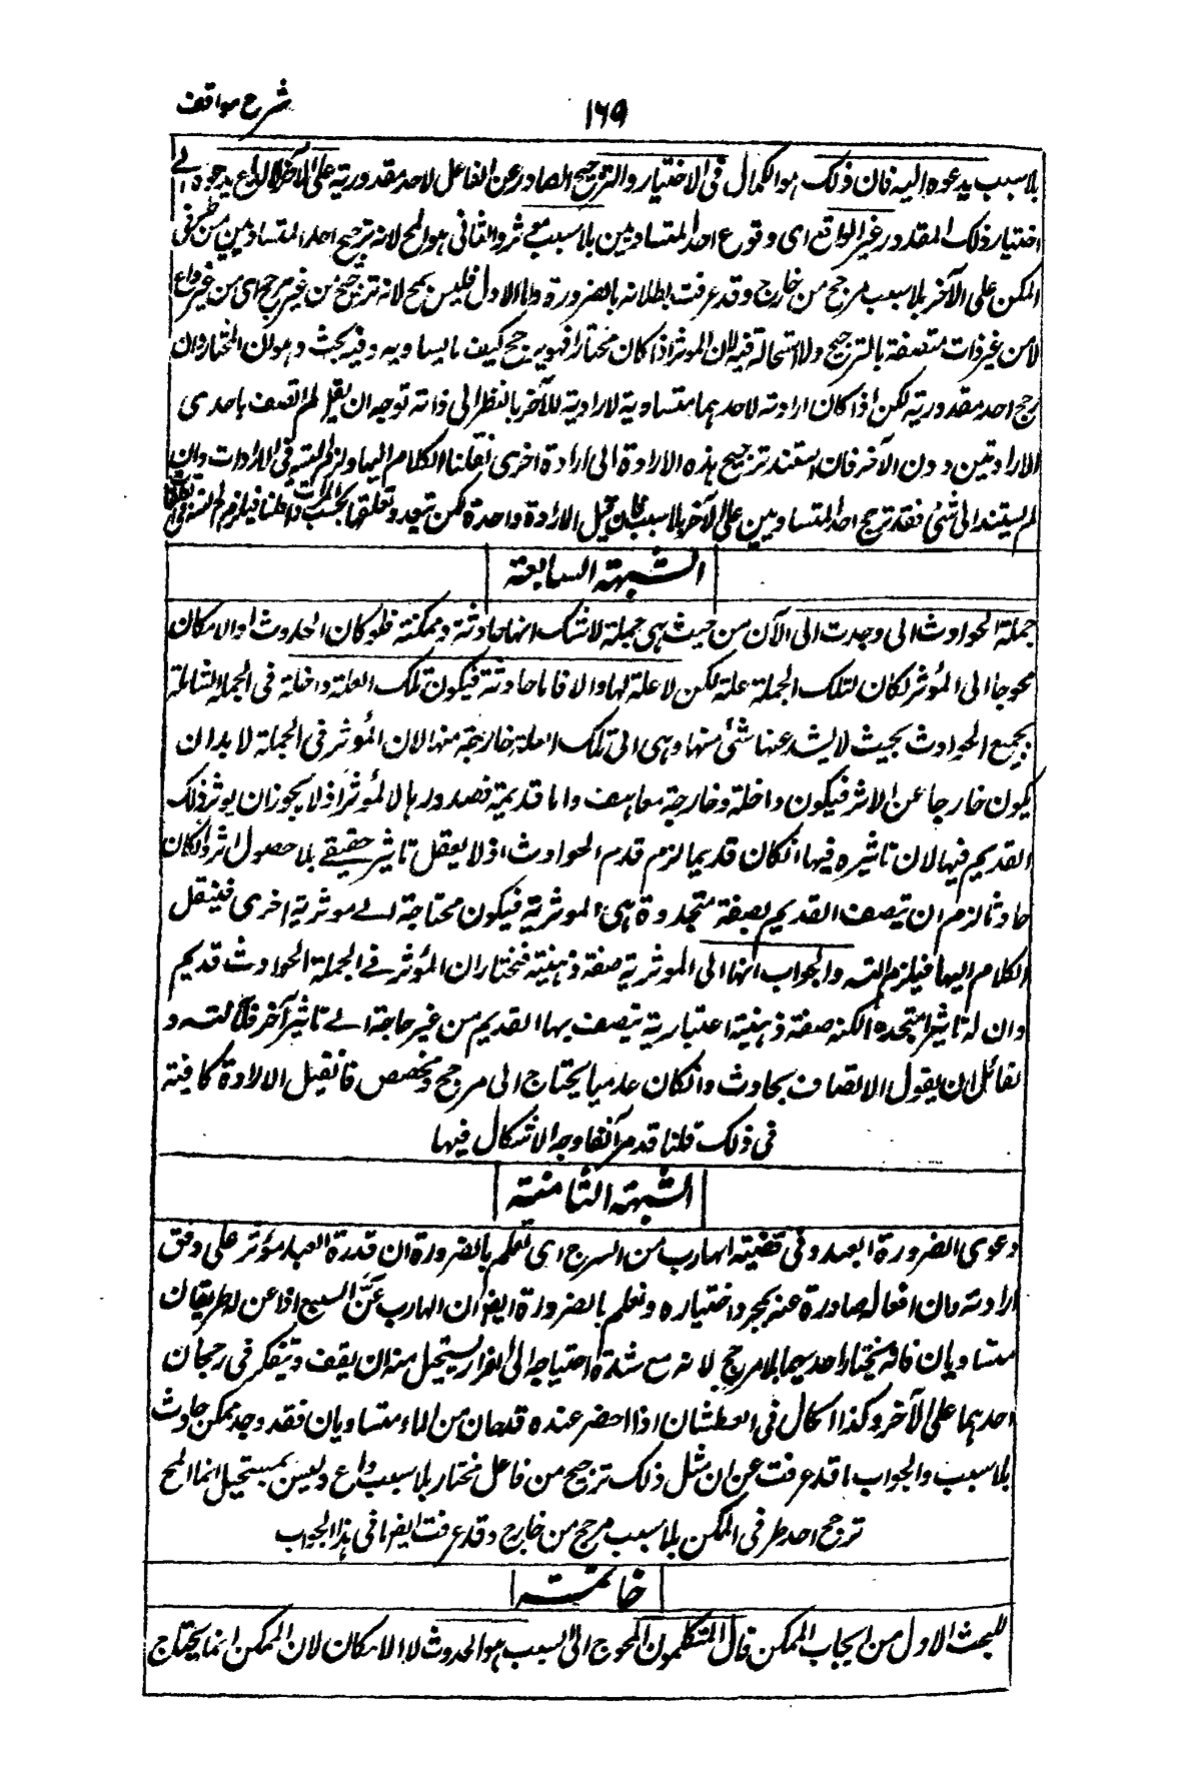 شرح مواقف
١٦٩
بلا سبب يدعوه اليه فان ذلك هو الكمال فى الاختيار والترجيح الصادر عن الفاعل لاحد مقدوريه على الآخر لا لداع يدعوه الے
اختيار ذلك المقدور غير الواقع اى وقوع احد المتساويين بلا سبب مؤثر والثانى هو المح لانه ترجيح احد المتساويين من طرفى
الممكن على الآخر بلا سبب مرجح من خارج وقد عرفت بطلانه بالضرورة واما الاول فليس بمح لانه ترجيح من غير مرجح اى من غير داع
لا من غير ذات متصفة بالترجيح ولا استحالة فيه لان الموثر اذا كان مختارا فهو يرجح كيف ما يساويه وفيه بحث وهو ان المختار وان
رجح احد مقدوريه لكن اذا كان ارادته لاحدهما متساوية لارادية للآخر بالنظر الى ذاته توجه ان يقال لم اتصف باحدى
الارادتين دون الآخر فان استند ترجيح هذه الارادة الى ارادة اخرى نقلنا الكلام اليها ولزم التسه فى الارادات وان
لم يستند الى شئ فقد ترجح احد المتساويين على الآخر بلا سبب فان قيل الارادة واحدة لكن يتعدد تعلقها بحسب المرادات قلنا فيلزم التسه فى التعلقات
الشبهة السابعة
جملة الحوادث الى وجدت الى الآن من حيث هى جملة لا شك انها حادثة وممكنة فلو كان الحدوث او الامكان
محوجا الى المؤثر لكان لتلك الجملة علة لكن لا علة لها والا فاما حادثة فيكون تلك العلة داخلة فى الجملة الشاملة
بجميع الحوادث بحيث لا يشذ عنها شئ منها وهى اى تلك العلة خارجة منها لان المؤثر فى الجملة لا بد ان
يكون خارجا عن الاثر فيكون داخلة وخارجة معا هف واما قديمة فصدورها لا لمؤثر اذ لا يجوز ان يوثر ذلك
القديم فيها لان تاثيره فيها ان كان قديما لزم قدم الحوادث اذ لا يعقل تاثير حقيقى بلا حصول اثر وان كان
حادثا لزم ان يتصف القديم بصفة متجددة هى الموثرية فيكون محتاجة الے موثرية اخرى فينقل
الكلام اليها فيلزم التسه والجواب انها اى الموثرية صفة ذهنية فنختار ان المؤثر فے الجملة الحوادث قديم
وان له تاثيرا متجددة لكنه صفة ذهنية اعتبارية يتصف بها القديم من غير حاجة الے تاثير آخر فلا تسه و
لقائل ان يقول الاتصاف بحادث وان كان عدميا يحتاج الى مرجح ومخصص فان قيل الارادة كافية
فى ذلك قلنا قد مر آنفا وجه الاشكال فيها
الشبهة الثامنة
دعوى الضرورة العبد وفى قضية الهارب من السبع اى نعلم بالضرورة ان قدرة العبد مؤثر على وفق
ارادته وان افعاله صادرة عنه بمجرد اختياره ونعلم بالضرورة ايضا ان الهارب عن السبع اذا عن له طريقان
متساويان فانه يختار احديهما بلا مرجح لانه مع شدة احتياجه الى الفرار يستحيل منه ان يقف ويتفكر فى رجحان
احدهما على الآخر وكذا الحال فى العطشان اذا احضر عنده قدحان من الماء متساويان فقد وجد ممكن حادث
بلا سبب والجواب ما قد عرفت عن ان مثل ذلك ترجيح من فاعل مختار بلا سبب داع وليس بمستحيل انما المح
ترجح احد طرفى الممكن بلا سبب مرجح من خارج وقد عرفت ايضا فى هذا الجواب
خاتمة
للبحث الاول من ابحاث الممكن قال المتكلمون المحوج الى السبب هو الحدوث لا الامكان لان الممكن انما يحتاج